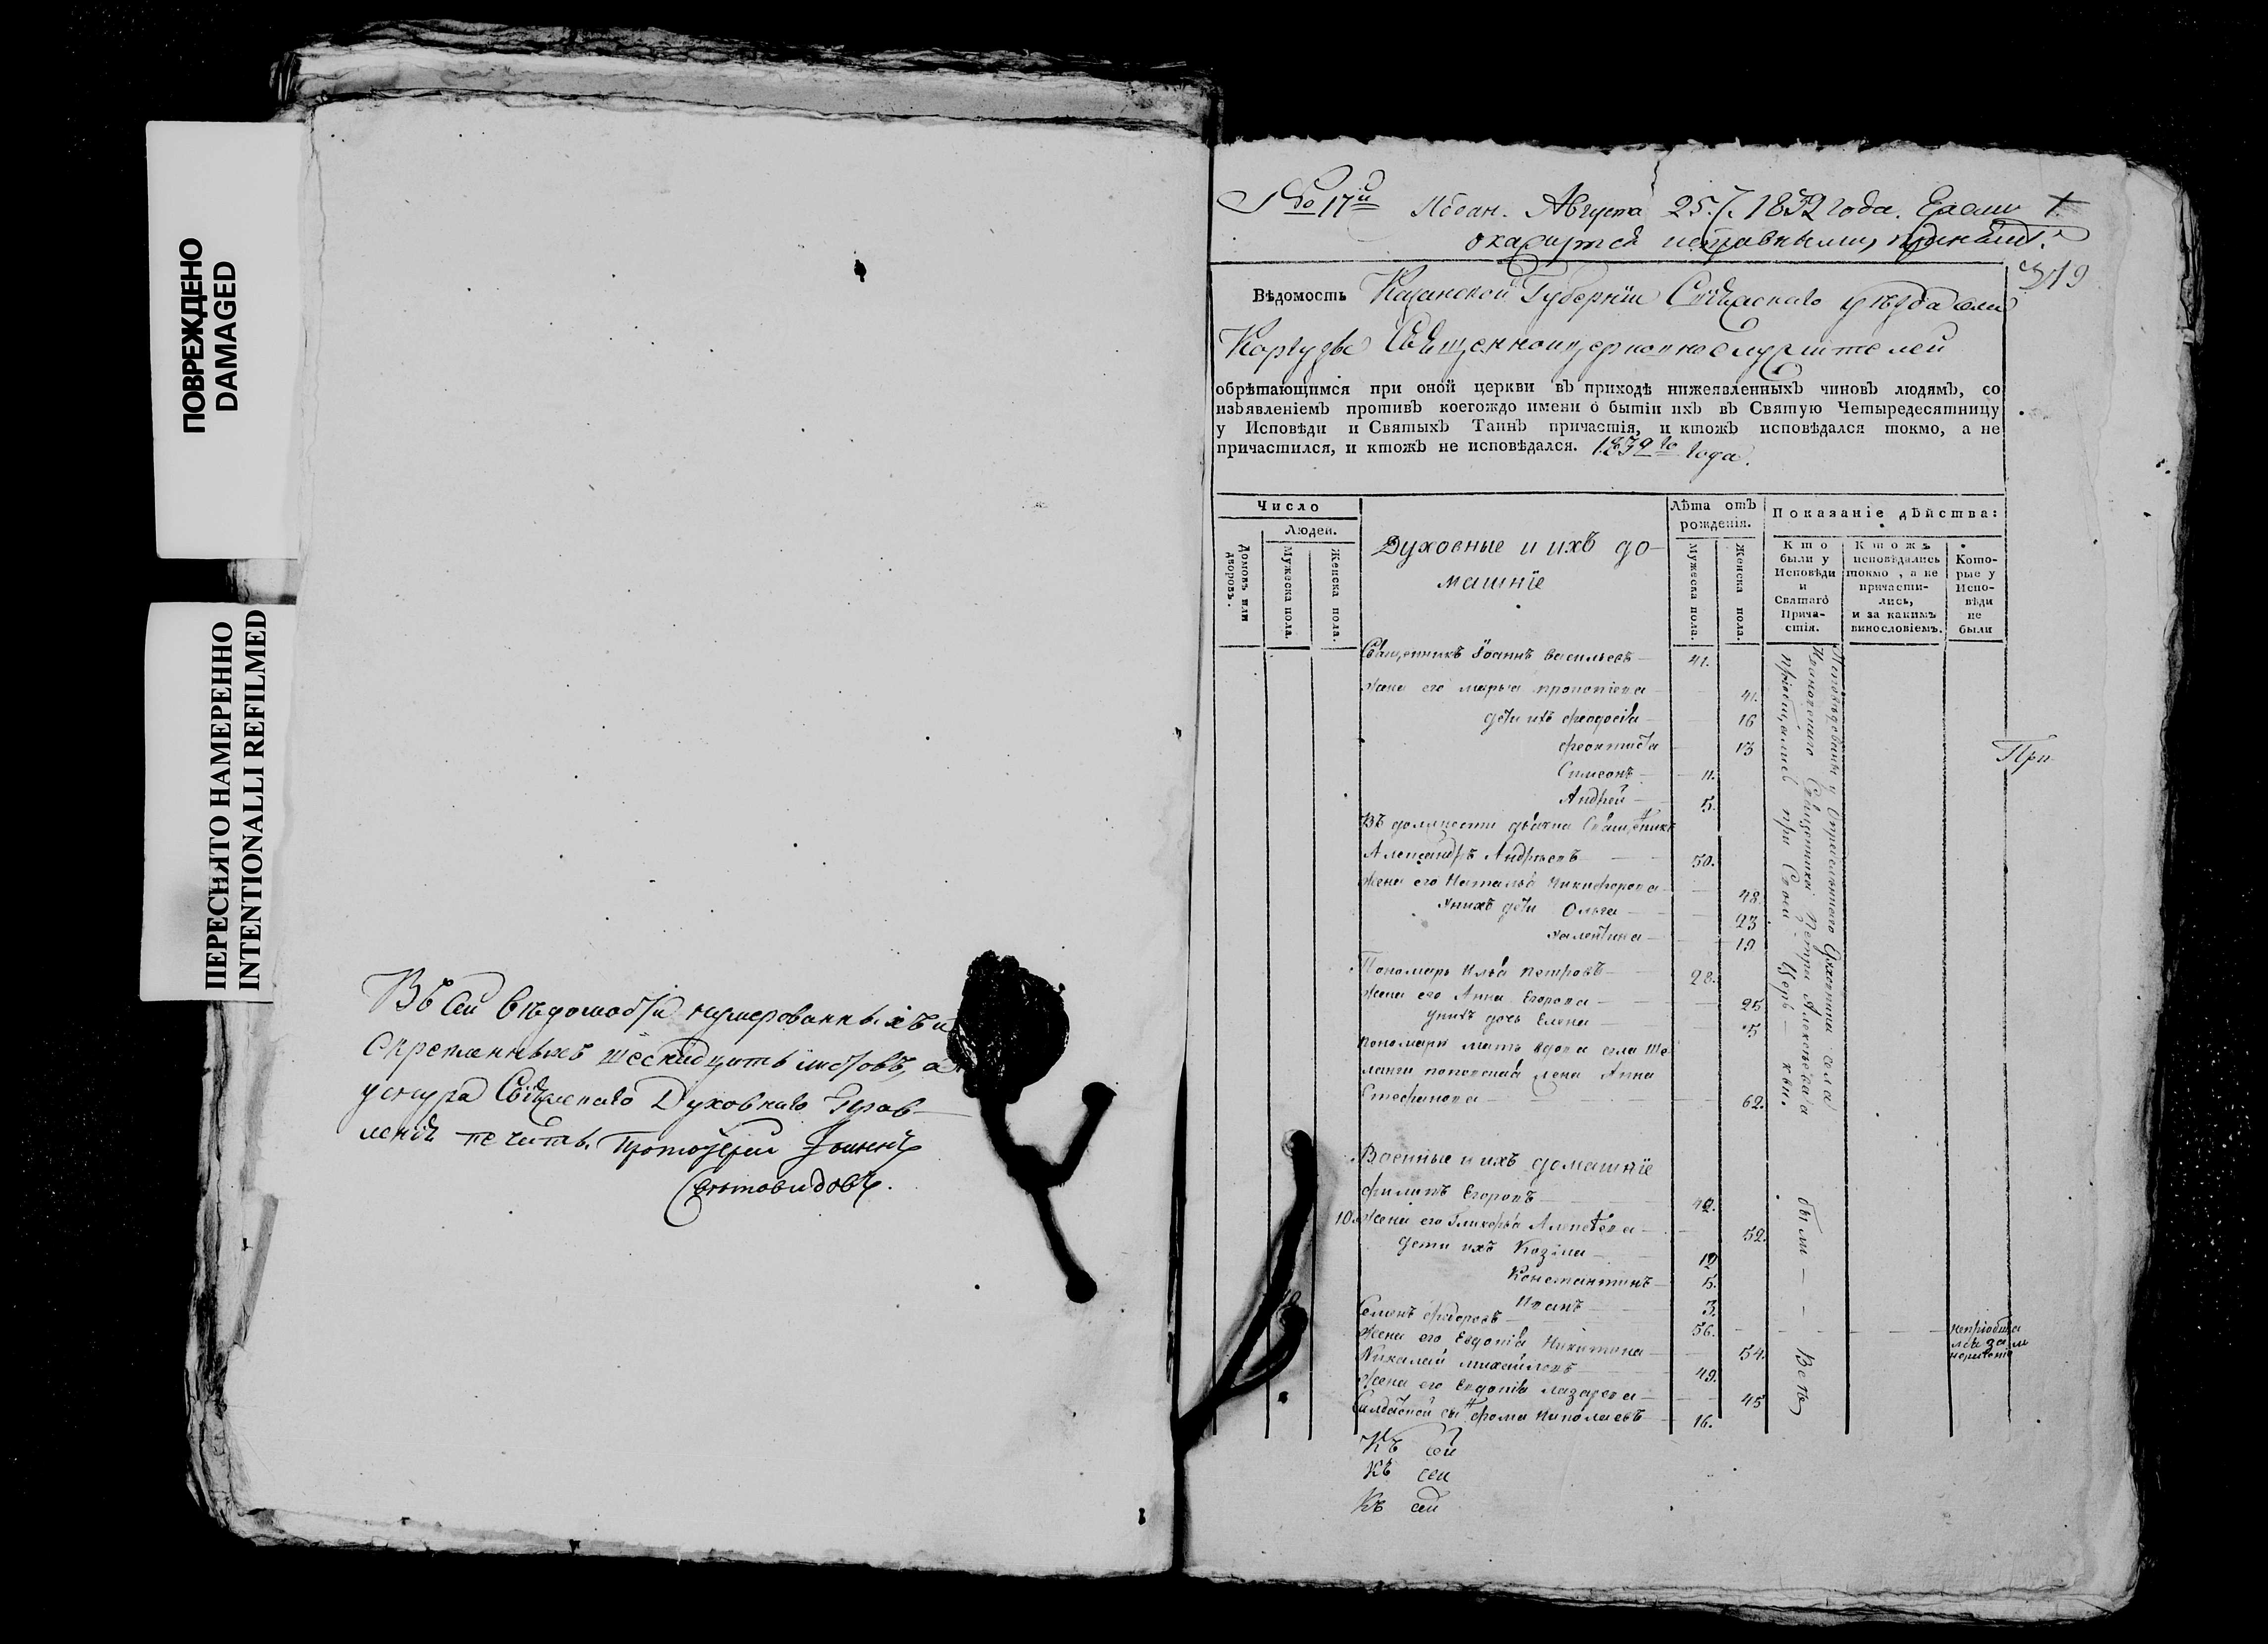 ПОВРЕЖДЕНО
DAMAGED
ПЕРЕСНЯТО НАМЕРЕННО
INTENTIONALLI REFILMED
Въ сей вѣдомости нумерованныхъ и
скрепленныхъ шеснадцать листовъ, а
Свіяжскаго Духовнаго Прав-
ленія печать. Протоіерей Іоаннъ
Святовидовъ.
№ 17й Августа 25. 1832 года. Если
окажутся исправными, принять.
319
Вѣдомость Казанской Губерніи Свіяжскаго уѣзда села
Священноицерковнослужителей
обрѣтающимся при оной церкви въ приходѣ нижеявленныхъ чиновъ людямъ, со
изъявленіемъ противъ коегождо имени о бытіи ихъ въ Святую Четыредесятницу
у Исповѣди и Святыхъ Таинъ причастія, и ктожъ исповѣдался токмо, а не
причастился, и ктожъ не исповѣдался. 1832го года.
Число
Людей.
Домовъ или дворовъ.
Мужеска пола.
Женска пола.
Духовные и ихъ до-
машніе
Лѣта отъ
рожденія.
Мужеска пола.
Женска пола.
Показаніе дѣйства:
Кто
были у
Исповѣди
и
Святаго
Прича-
стія.
Ктожъ
исповѣдались
токмо, а не
причасти-
лись,
и за какимъ
винословіемъ.
Кото-
рые у
Испо-
вѣди
не
были
Священникъ Іоаннъ Васильевъ 41.
Жена его Марья Прокопіева 41.
дѣти ихъ Феодосія 16
Феоктиста 13
Симеонъ 11.
Андрей 5.
Въ должности дьячка Священникъ
Александръ Андреевъ 50.
Жена его Наталья Никифорова 48.
у нихъ дѣти Ольга 23
Валентина 19
Пономарь Илья Петровъ 28.
Жена его Анна Егорова 25
у нихъ дочь Елена 5
Пономаря мать вдова села Ше
ланги поповская жена Анна
Стефанова 62.
При
Военные и ихъ домашніе
Филипъ Егоровъ 42.
10. Жена его Гликерья Алексѣева 52.
дети ихъ Козьма 12
Константинъ 5.
Иванъ 3.
Семенъ Федоровъ 56.
Жена его Евдокія Никитина 54.
Николай Михайловъ 49.
Жена его Евдокія Лазарева 45
Солдатской сынъ Фома Николаевъ 16.
были — — Всѣ
Къ сей
Къ сей
Къ сей